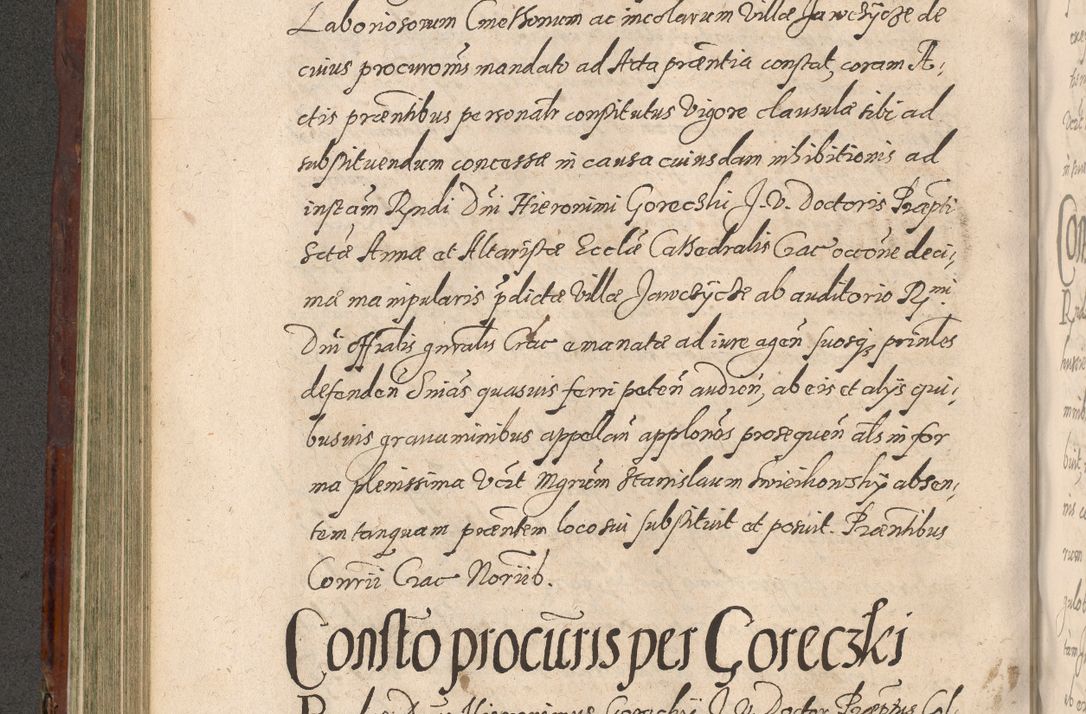 Laboriosorum Cmethonum ac incolarum Villæ Jawczÿcze de
cuius procuronis mandato ad Acta præntia constat, coram A,
ctis præntibus personalr constitutus Vigore clausulæ sibi ad
substituendum concessæ in causa cuiusdam inhibitionis ad
instam Rndi Dni Hieronimi Gorecski J. V. Doctoris Præpti
Sctæ Annæ et Altaristæ Ecclæ Cathedralis Crac occone deci,
mæ manipularis pdictæ Villæ Jawczÿcze ab auditorio Rmi
Dni Offialis gnralis Crac emanatæ ad iure agen suosq printes
defenden Snias quasuis ferri peten audien, ab eis et alÿs qui,
busuis grauaminibus appellan applonos prosequen als in for
ma plenissima Vert Mgrum Stanislaum Swieikowskÿ absen,
tem tanquam præntem loco sui substituit et posuit. Præntibus
Conrii Crac Noriib.
Consto procuris per Goreczki
Hieronimus Goreczkÿ J. V. Doctor Præptus Col,